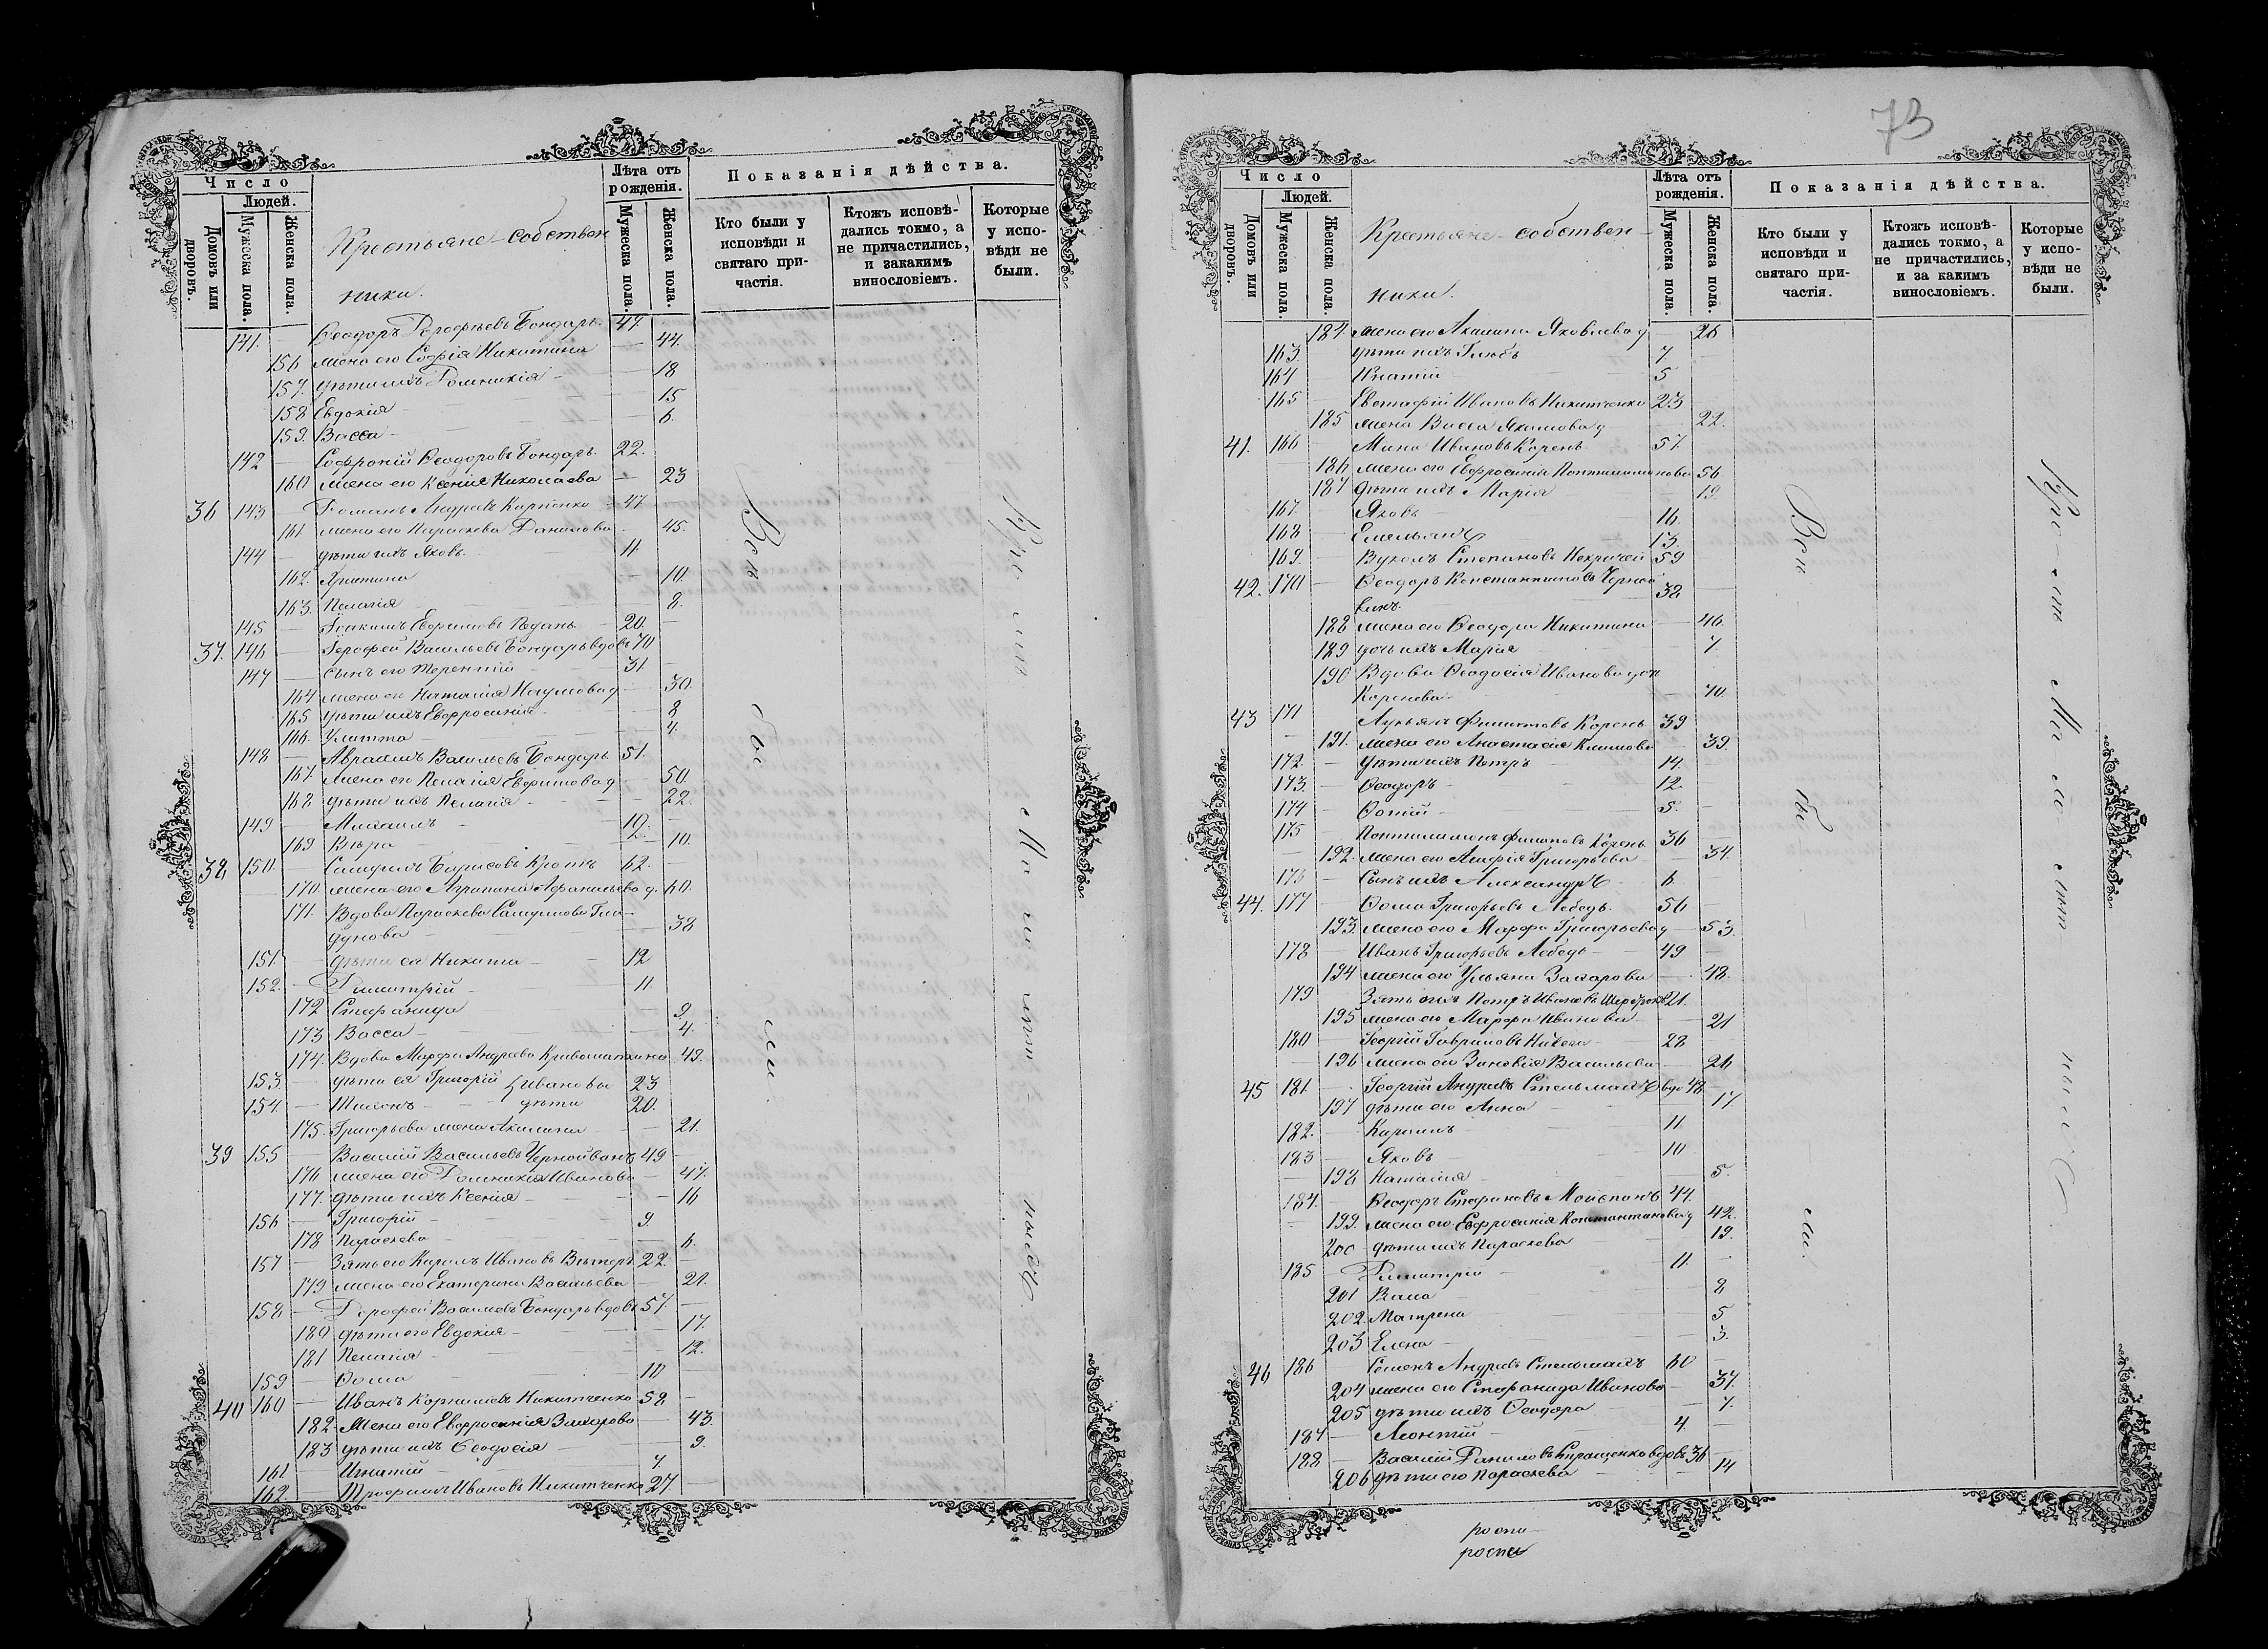 73
Число
Людей.
Домовъ или дворовъ.
Мужеска пола.
Женска пола.
Крестьяне-собствен
ники.
Лѣта отъ рожденія.
Мужеска пола.
Женска пола.
Показанія дѣйства.
Кто были у исповѣди и святаго причастія.
Ктожъ исповѣдались токмо, а не причастились, и закакимъ винословіемъ.
Которые у исповѣди не были.
141. Ѳеодоръ Бондарь 47.
156 жена его Софія Никитина 44.
157. дѣти ихъ Домникія 18
158 Евдокія 15
159. Васса 6.
142 Софроній Ѳеодоровъ Бондарь. 22.
160 жена его Ксенія Николаева 23
36 143 Романъ Андреевъ Карпенко 47
161. жена его Параскева Данилова 45.
144 дѣти ихъ Яковъ 11.
162. Христина 10.
163. Пелагія 8.
145 Іоакимъ Евфимовъ 20.
37. 146 Васильевъ Бондарь вдовъ 70
147 сынъ его Терентій 31
164 жена его Наталія Наумова 30.
165 дѣти ихъ Евфросинія 8
166. Улитта 4.
148 Авраамъ Васильевъ Бондарь 51.
167. жена его Пелагія Евфимова 50.
168 дѣти ихъ Пелагія 22.
149 Михаилъ
169 Вѣра 10.
38 150. Борисовъ 62.
170. жена его Агрипина 60.
171. Вдова Параскева
38
151 дѣти ея Никита 12
152. Димитрій 11.
172 Стефанида 9.
173 Васса 4.
174. Вдова Марфа Андреева 49.
153 дѣти ея Григорій Ивановы 23
154. дѣти 20.
175. Григорьева жена Акилина 21.
39 155 Василій Васильевъ Чернойванъ 49
176 жена его Домникія Иванова 47.
177. дѣти ихъ Ксенія 16
156 Григорій 9.
178 Параскева 6.
157 Зять его Кирилъ Ивановъ 22.
179 жена его Екатерина Васильева 21.
158 Дорофей Васильевъ Бондарь вдовъ 57.
180 дѣти его Евдокія 17.
181 Пелагія 12.
159 Ѳома 10
40 160 Иванъ Корниліевъ Никитченко 58
182 Жена его Евфросинія Захарова 43.
183 дѣти ихъ Ѳеодосія 9.
161 Игнатій 7
162 Трофимъ Ивановъ Никитченко 27.
Всѣ бы ли.
Кромѣ Малолѣт нихъ
Число
Людей.
Домовъ или дворовъ.
Мужеска пола.
Женска пола.
Крестьяне-собствен-
ники.
Лѣта отъ рожденія.
Мужеска пола.
Женска пола.
Показанія дѣйства.
Кто были у исповѣди и святаго причастія.
Ктожъ исповѣдались токмо, а не причастились, и за какимъ винословіемъ.
Которые у исповѣди не были.
184. жена его Акилина Яковлева 26
163. дѣти ихъ Глѣбъ 7
164 Игнатій 5
165 Евстафій Ивановъ Никитченко 23
185 жена Васса 22.
41. 166 Мина Ивановъ Корень 57.
186 жена его Евфросинія Пантилимонова 56
187 дѣти ихъ Марія 19.
167 Яковъ 16.
168 Емельянъ 13.
169. Вуколъ Степановъ 59
42. 170 Ѳеодоръ Константиновъ 38
188 жена его Ѳеодора Никитина 46.
189 дочь ихъ Марія 7.
190 Вдова Ѳеодосія Иванова
Коренева 70.
43 171 Лукьянъ Филиповъ Корень 39
191. жена его Анастасія Климова 39.
172. дѣти ихъ Петръ 14.
173. Ѳеодоръ 12.
174 Фотій 5.
175 Пантилимонъ Филиповъ Корень 36
192. жена его Григорьева 34.
176 Сынъ ихъ Александръ 6.
44. 177 Ѳома Григорьевъ Лебедь 56
193. жена его Марфа Григорьева 53.
178 Иванъ Григорьевъ Лебедь 49
194 жена его Ульяна Захарова 48.
179 Зять ихъ Петръ Ивановъ 21.
195 жена его Марфа Иванова 21
180 Георгій Гавриловъ 28
196 жена его Зиновія Васильева 26
45 181 Георгій Андреевъ Стельмахъ вдо 48
197 дѣти его Анна 17.
182. Кириллъ 11
183 Яковъ 10
198 Наталія 5.
184. Ѳеодоръ Стефановъ 44.
199. жена его Евфросинія Константинова 42.
200 дѣти ихъ Параскева 19.
185 Димитрій 11.
201 8
202. Матрена 5
203 Елена 3.
46 186 Семенъ Андреевъ Стельмахъ 60
204 жена его Стефанида Иванова 37.
205 дѣти ихъ Ѳеодора 7.
187 Леонтій 4.
188 Василій Даниловъ вдовъ 36
206 дѣти его Параскева 14
Всѣ бы ли.
Кромѣ Малолѣт нихъ
роспи